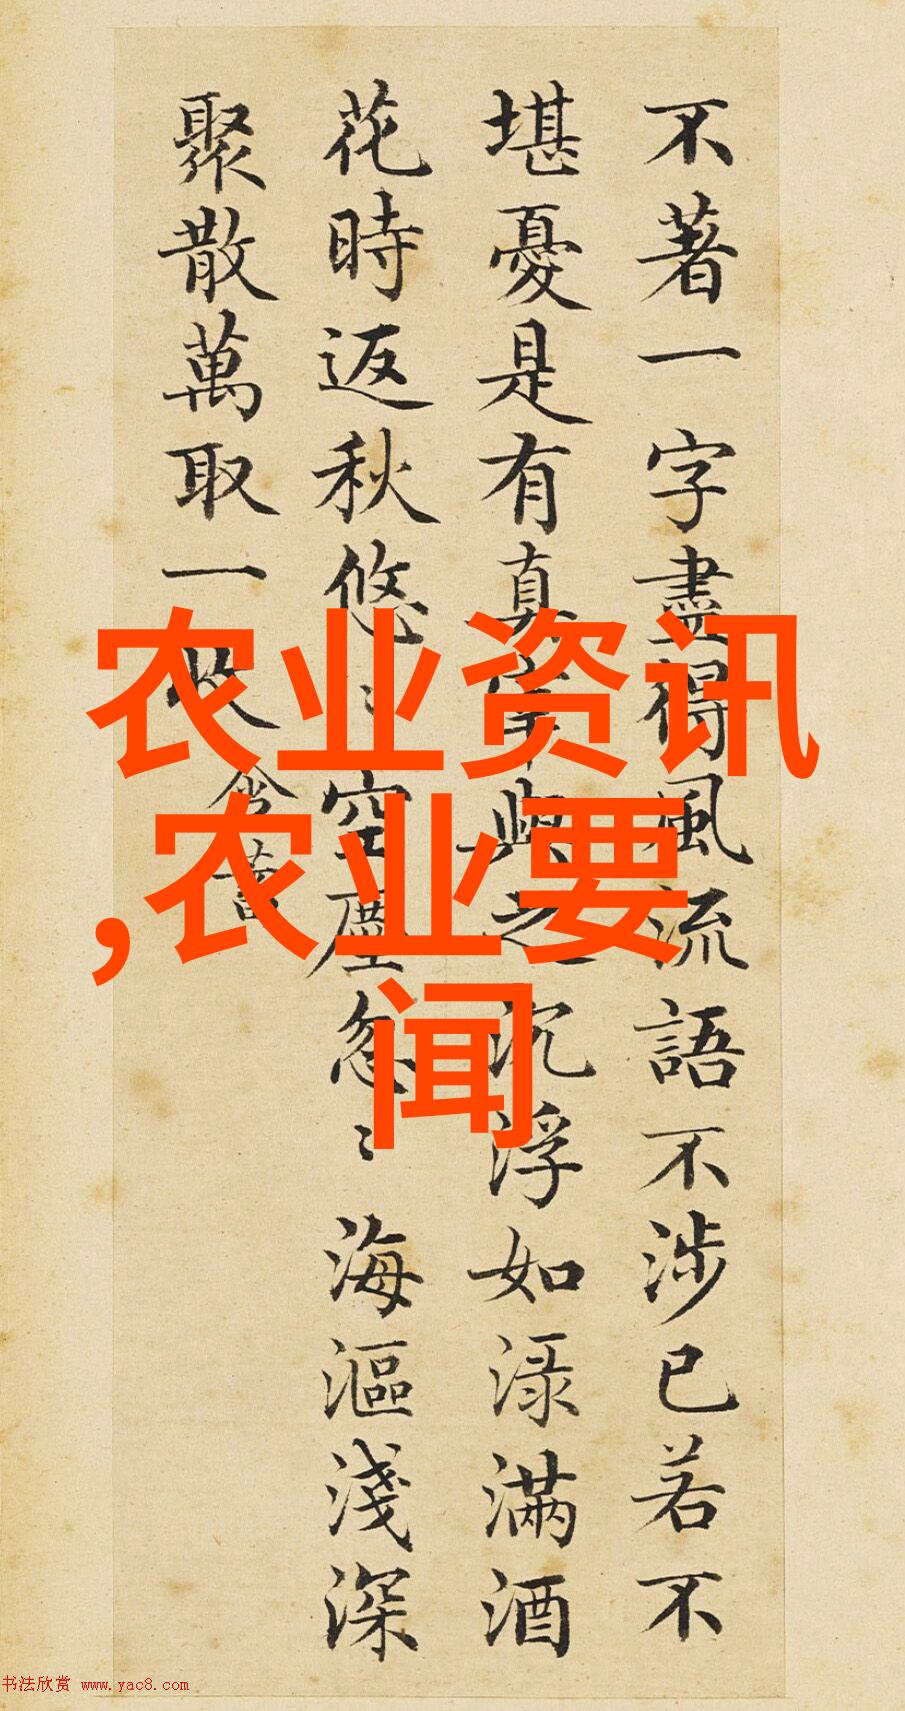 不著一字盡得風流語不涉已若不
堪憂是有真宰與之沉浮如渌滿酒
花時返秋悠〻空塵忽〻海漚淺深
聚散萬取一收 含蓄
农业资讯
,农业要
闻
书法欣赏 www.yac8.com